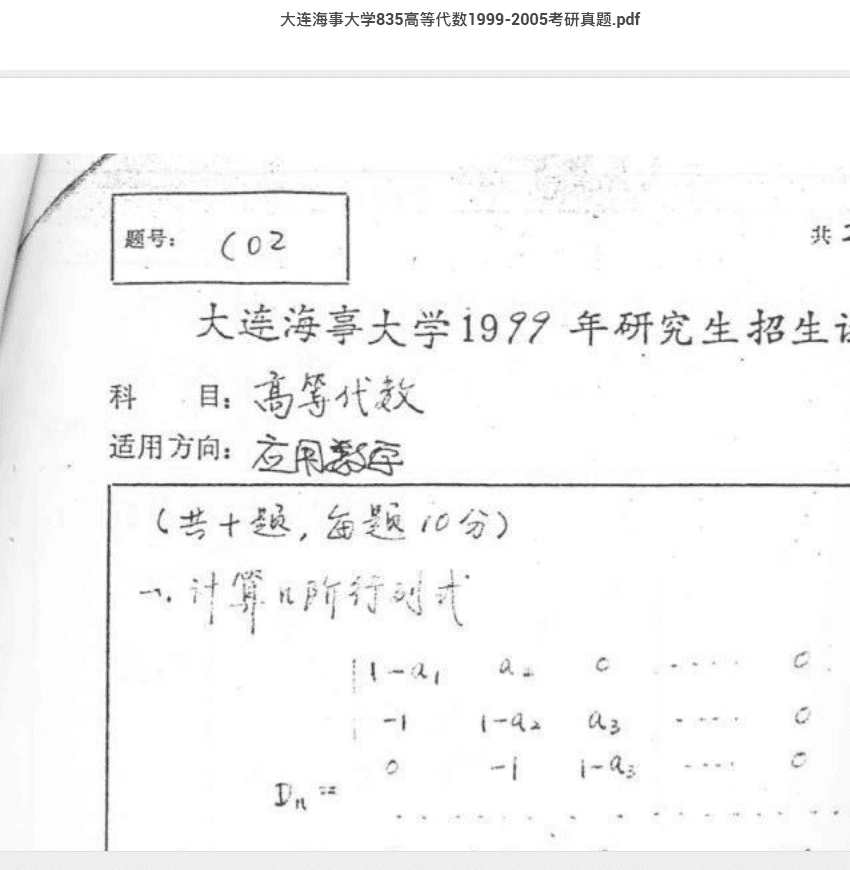 大连海事大学835高等代数1999-2005考研真题.pdf
题号： 602
共 2
大连海事大学1999 年研究生招生
科 目：高等代数
适用方向：应用数学
（共十题，每题10分）
一、计算n阶行列式
1-a₁ a₂ 0 ···· 0
-1 1-a₂ a₃ ···· 0
0 -1 1-a₃ ···· 0
Dₙ =